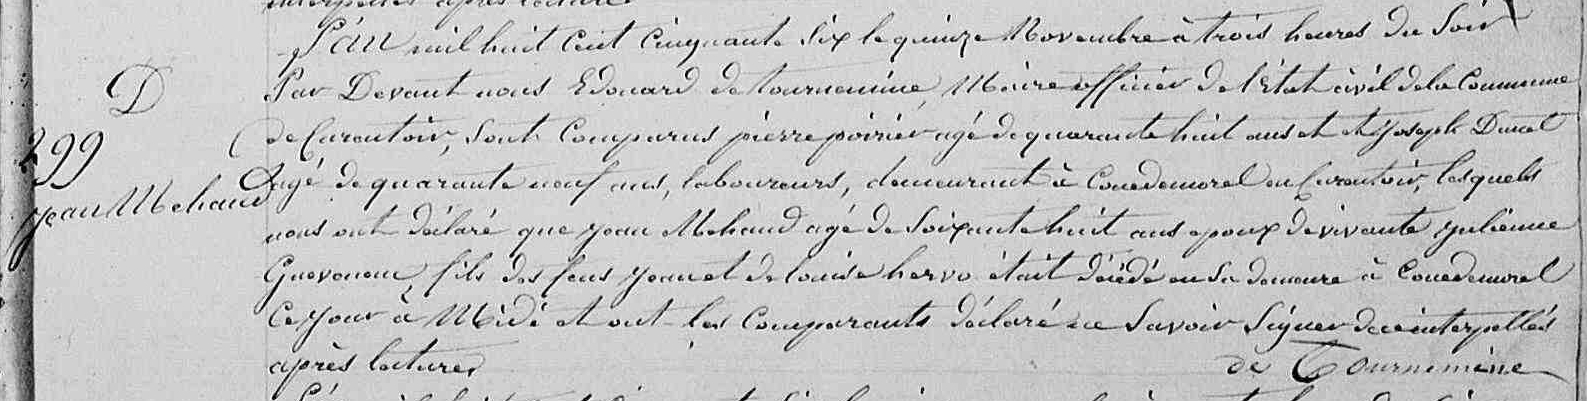 interpellés après lecture
L'an mil huit cent cinquante six le quinze Novembre à trois heures du Soir
D
Par Devant nous Edouard de tournemine, Maire officier de l'état civil de la Commune
299
de Carentoir, sont comparus pierre poirier agé de quarante huit ans et et Joseph Ducat
agé de quarante neuf ans, laboureurs, demeurant à Couedemorel en Carentoir, lesquels
jean Mehaud
nous ont déclaré que jean Mehaud agé de Soixante huit ans epoux de vivante julienne
fils des feus jean et de louise hervo était décédé en Sa demeure à Couedemorel
Ce jour à Midi et ont les Comparants déclaré ne Savoir Signer de ce interpellés
après lecture
de Tournemine